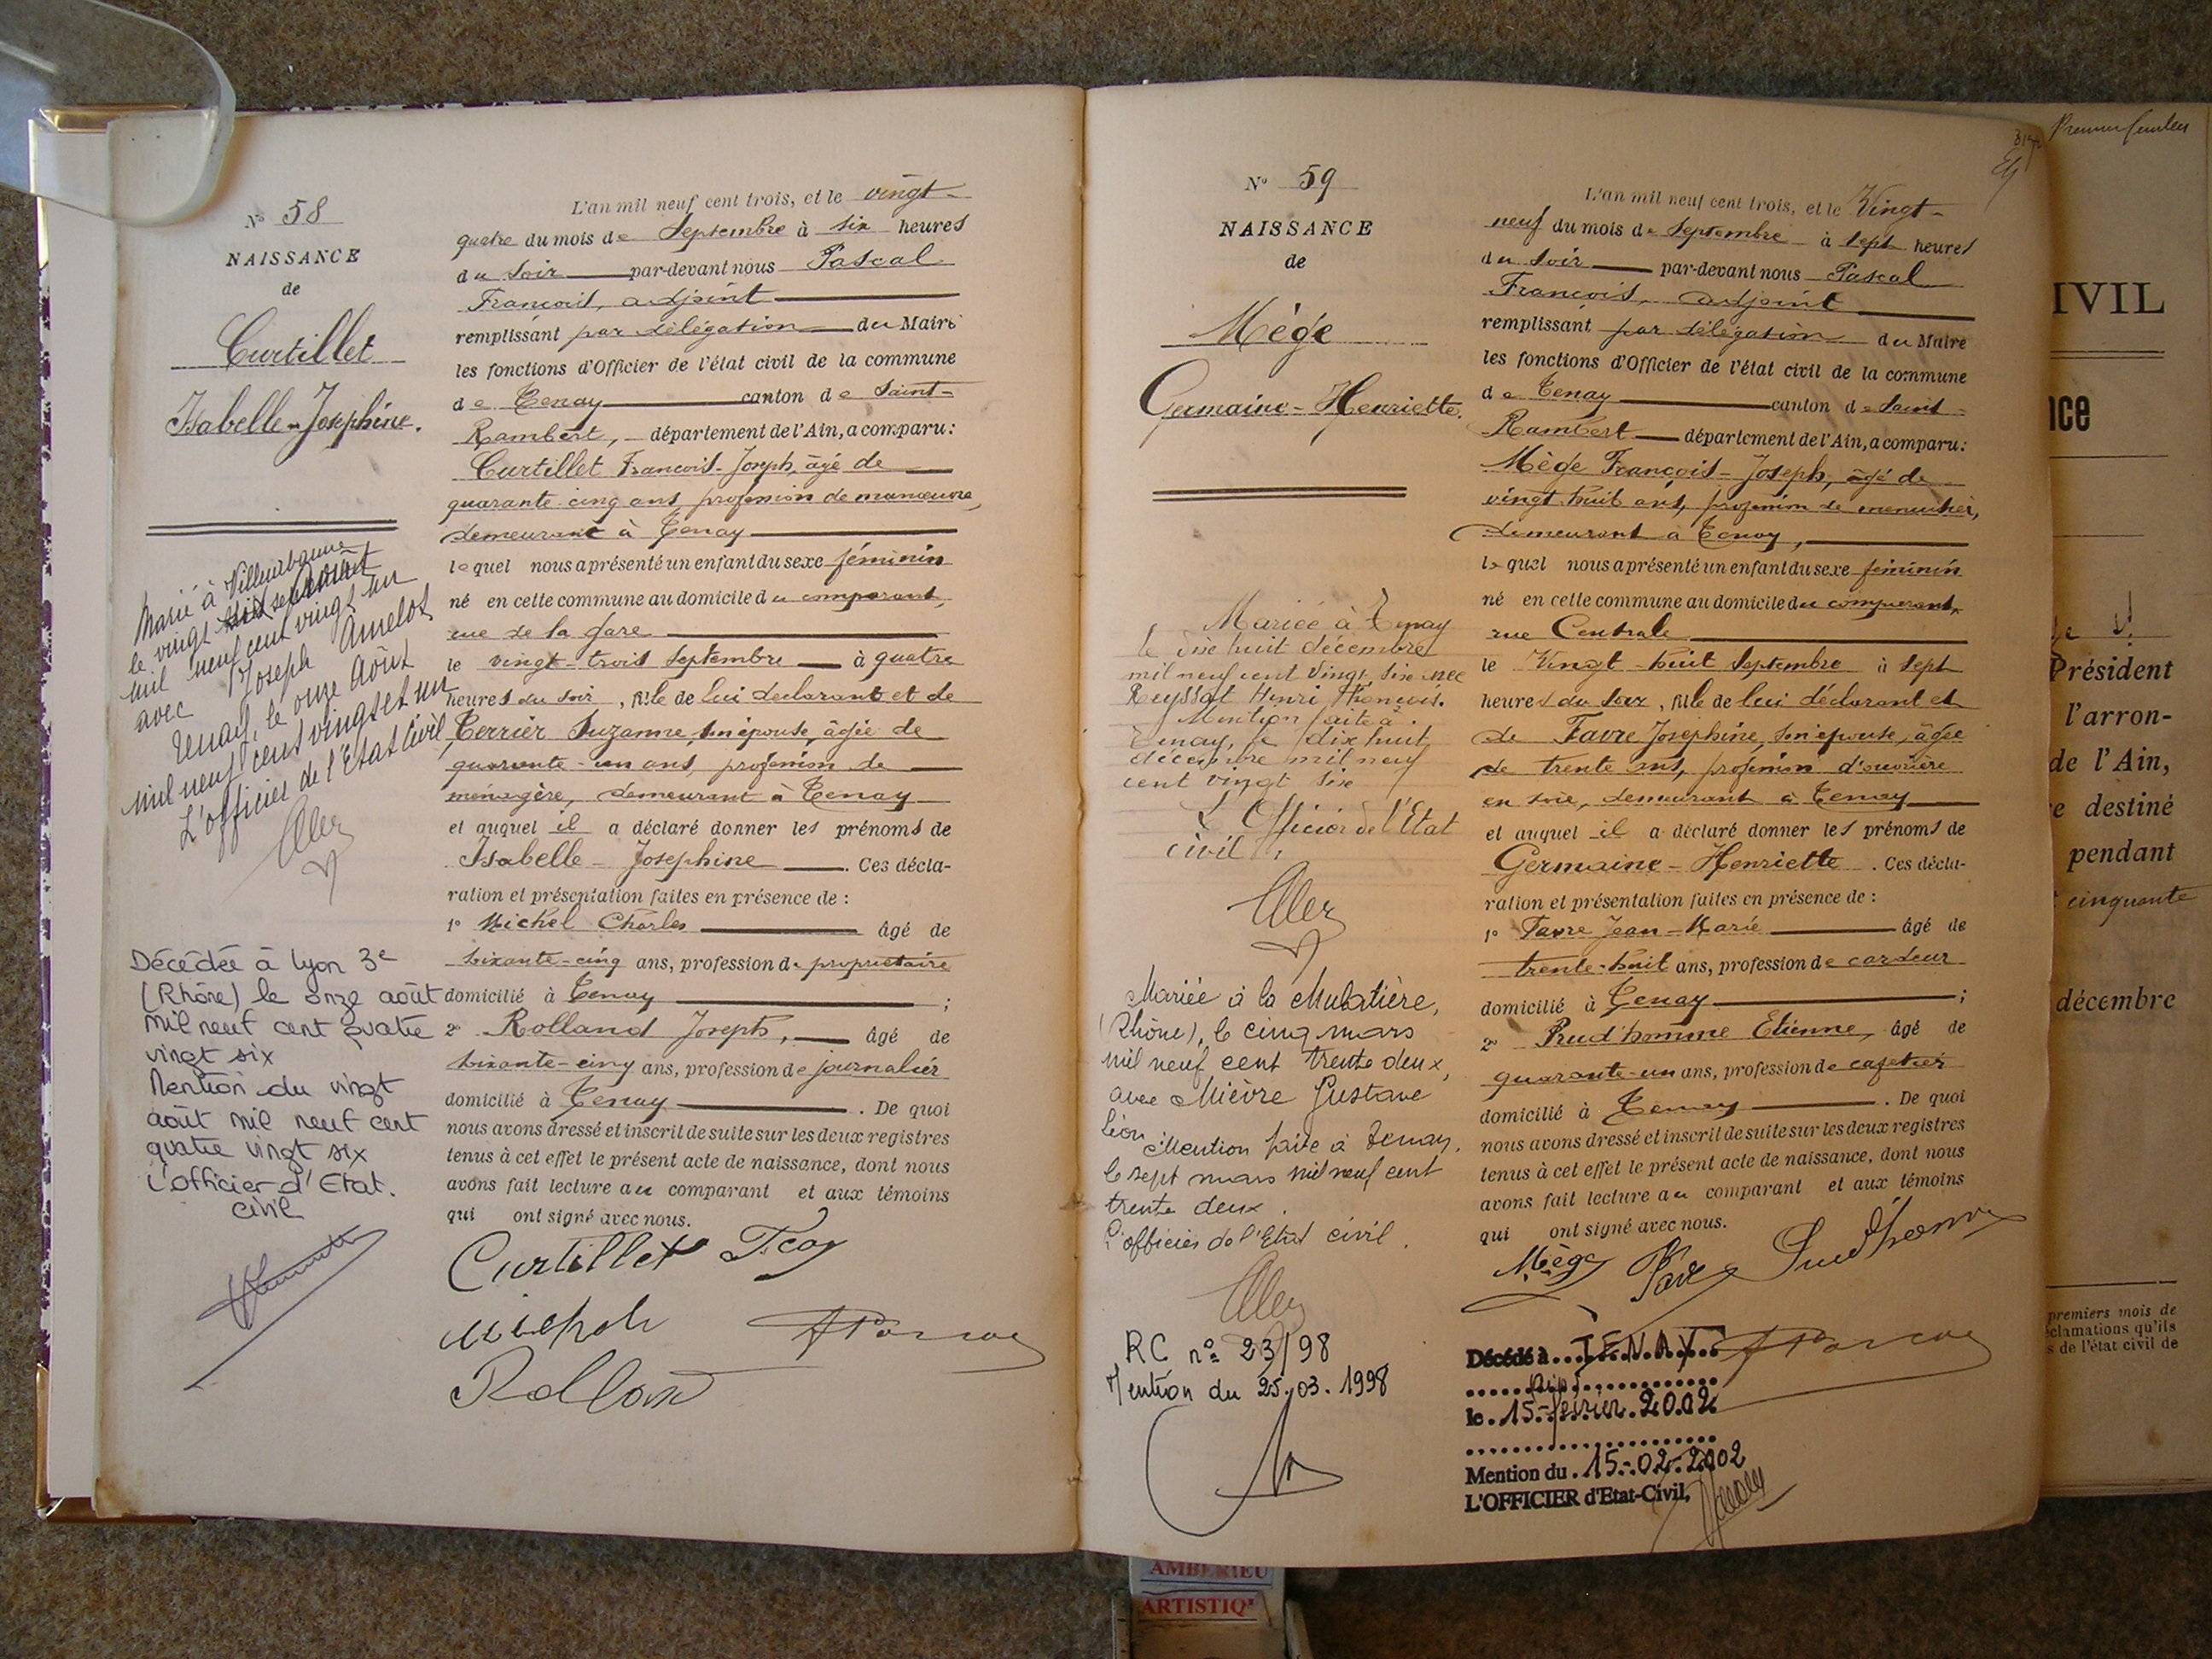 N° 58
NAISSANCE
de
Curtillet
Isabelle-Josephine.
Marié à Villeurbanne
le vingt août
mil neuf cent vingt un
avec Joseph Amelot
Tenay, le onze Août
mil neuf cent vingt et un
L'officier de l'Etat Civil
Décédée à Lyon 3e
(Rhône) le onze août
mil neuf cent quatre
vingt six
Mention du vingt
août mil neuf cent
quatre vingt six
L'officier d'Etat.
civil
L'an mil neuf cent trois, et le vingt-
quatre du mois de Septembre à six heures
du soir par-devant nous Pascal
François, adjoint
remplissant par délégation du Maire
les fonctions d'Officier de l'état civil de la commune
de Tenay canton de Saint-
Rambert, département de l'Ain, a comparu:
Curtillet François-Joseph, âgé de
quarante cinq ans profession de manœuvre,
demeurant à Tenay
lequel nous a présenté un enfant du sexe féminin
né en cette commune au domicile du comparant,
rue de la gare
le vingt-trois Septembre à quatre
heures du soir, fille de lui déclarant et de
Terrier Suzanne, son épouse, âgée de
quarante-un ans, profession de
ménagère, demeurant à Tenay
et auquel il a déclaré donner les prénoms de
Isabelle-Josephine. Ces décla-
ration et présentation faites en présence de :
1° Michel Charles âgé de
soixante-cinq ans, profession de propriétaire
domicilié à Tenay ;
2° Rolland Joseph, âgé de
soixante-cinq ans, profession de journalier
domicilié à Tenay. De quoi
nous avons dressé et inscrit de suite sur les deux registres
tenus à cet effet le présent acte de naissance, dont nous
avons fait lecture au comparant et aux témoins
qui ont signé avec nous.
Curtillet
Michel
Rolland
N° 59
NAISSANCE
de
Mège
Germaine-Henriette.
Mariée à Tenay
le dix huit décembre
mil neuf cent vingt six avec
Reyssat Henri François.
Mention faite à
Tenay, le dix huit
décembre mil neuf
cent vingt six
L'Officier de l'Etat
civil,
Mariée à la Mulatière,
(Rhône), le cinq mars
mil neuf cent trente deux,
avec Mièvre Gustave
Léon Mention faite à Tenay,
le sept mars mil neuf cent
trente deux.
L'officier de l'Etat civil.
RC n° 23/98
Mention du 25.03.1998
L'an mil neuf cent trois, et le Vingt-
neuf du mois de Septembre à sept heures
du soir par-devant nous Pascal
François, adjoint
remplissant par délégation du Maire
les fonctions d'Officier de l'état civil de la commune
de Tenay canton de Saint-
Rambert département de l'Ain, a comparu:
Mège François-Joseph, âgé de
vingt-huit ans, profession de menuisier,
demeurant à Tenay,
lequel nous a présenté un enfant du sexe féminin
né en cette commune au domicile du comparant,
rue Centrale
le Vingt-huit Septembre à sept
heures du soir, fille de lui déclarant et
de Favre Josephine, son épouse, âgée
de trente ans, profession d'ouvrière
en soie, demeurant à Tenay
et auquel il a déclaré donner les prénoms de
Germaine-Henriette. Ces décla-
ration et présentation faites en présence de :
1° Favre Jean-Marie âgé de
trente-huit ans, profession de cardeur
domicilié à Tenay ;
2° Prud'homme Etienne, âgé de
quarante-un ans, profession de cafetier
domicilié à Tenay. De quoi
nous avons dressé et inscrit de suite sur les deux registres
tenus à cet effet le présent acte de naissance, dont nous
avons fait lecture au comparant et aux témoins
qui ont signé avec nous.
Mège Favre Prudhomme
Décédé à TENAY
Ain
le 15 février 2002
Mention du 15-02-2002
L'OFFICIER d'Etat-Civil,
Premier feuillet
IVIL
nce
Président
l'arron-
de l'Ain,
e destiné
pendant
cinquante
décembre
premiers mois de
clamations qu'ils
s de l'état civil de
AMBERIEU
ARTISTIQ